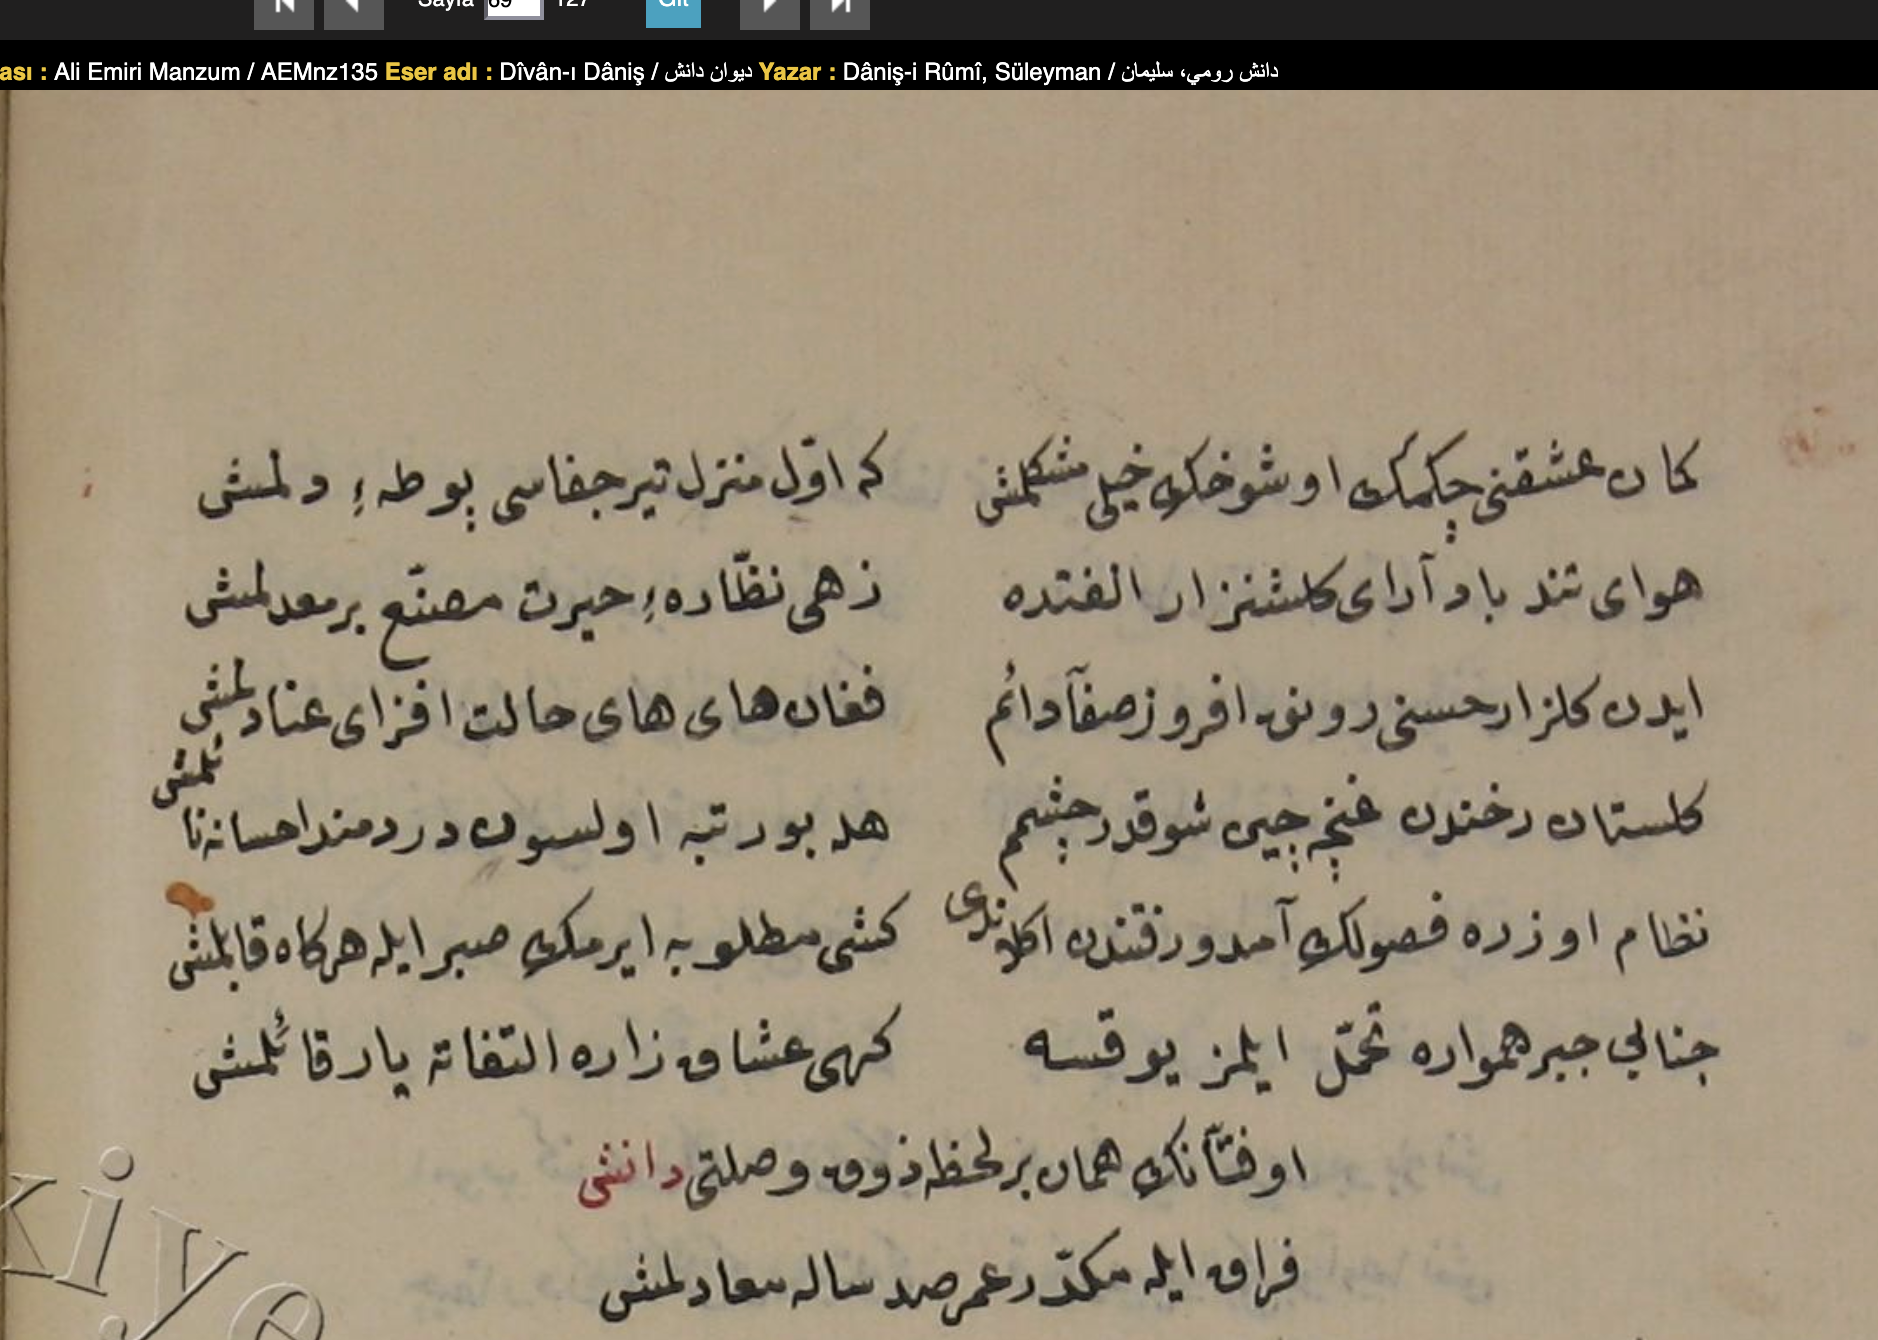 Sayfa 69 127 Git
ası : Ali Emiri Manzum / AEMnz135 Eser adı : Dîvân-ı Dâniş / ديوان دانش Yazar : Dâniş-i Rûmî, Süleyman / دانش رومي، سليمان
كمان عشقنى چكمك او شوخك خيلى مشكلمش كه اوّل منزل تير جفاسى پوطهٔ دلمش
هواى تند باد آراى كلشنزار الفتده زهى نظّارهٔ حيرت مصنّع بر معدلمش
ايدن كلزار حسنى رونق افروز صفآ دائم فغان هاى هاى حالت افزاى عنادلمش
كلستان رخندن غنچه چين شوقدر چشمم هله بو رتبه اولسون دردمند احسانه نائلمش
نظام اوزره فصولك آمد و رفتندن اكلوندى كشى مطلوبه ايرمك صبر ايله هركاه قابلمش
جنابى جبر همواره تحمّل ايلمز يوقسه كهى عشاق زاره التفاته يار قائلمش
او فتّآنك همان بر لحظه ذوق وصلتى دانش
فراق ايله مكدّر عمر صد ساله معادلمش
kiye